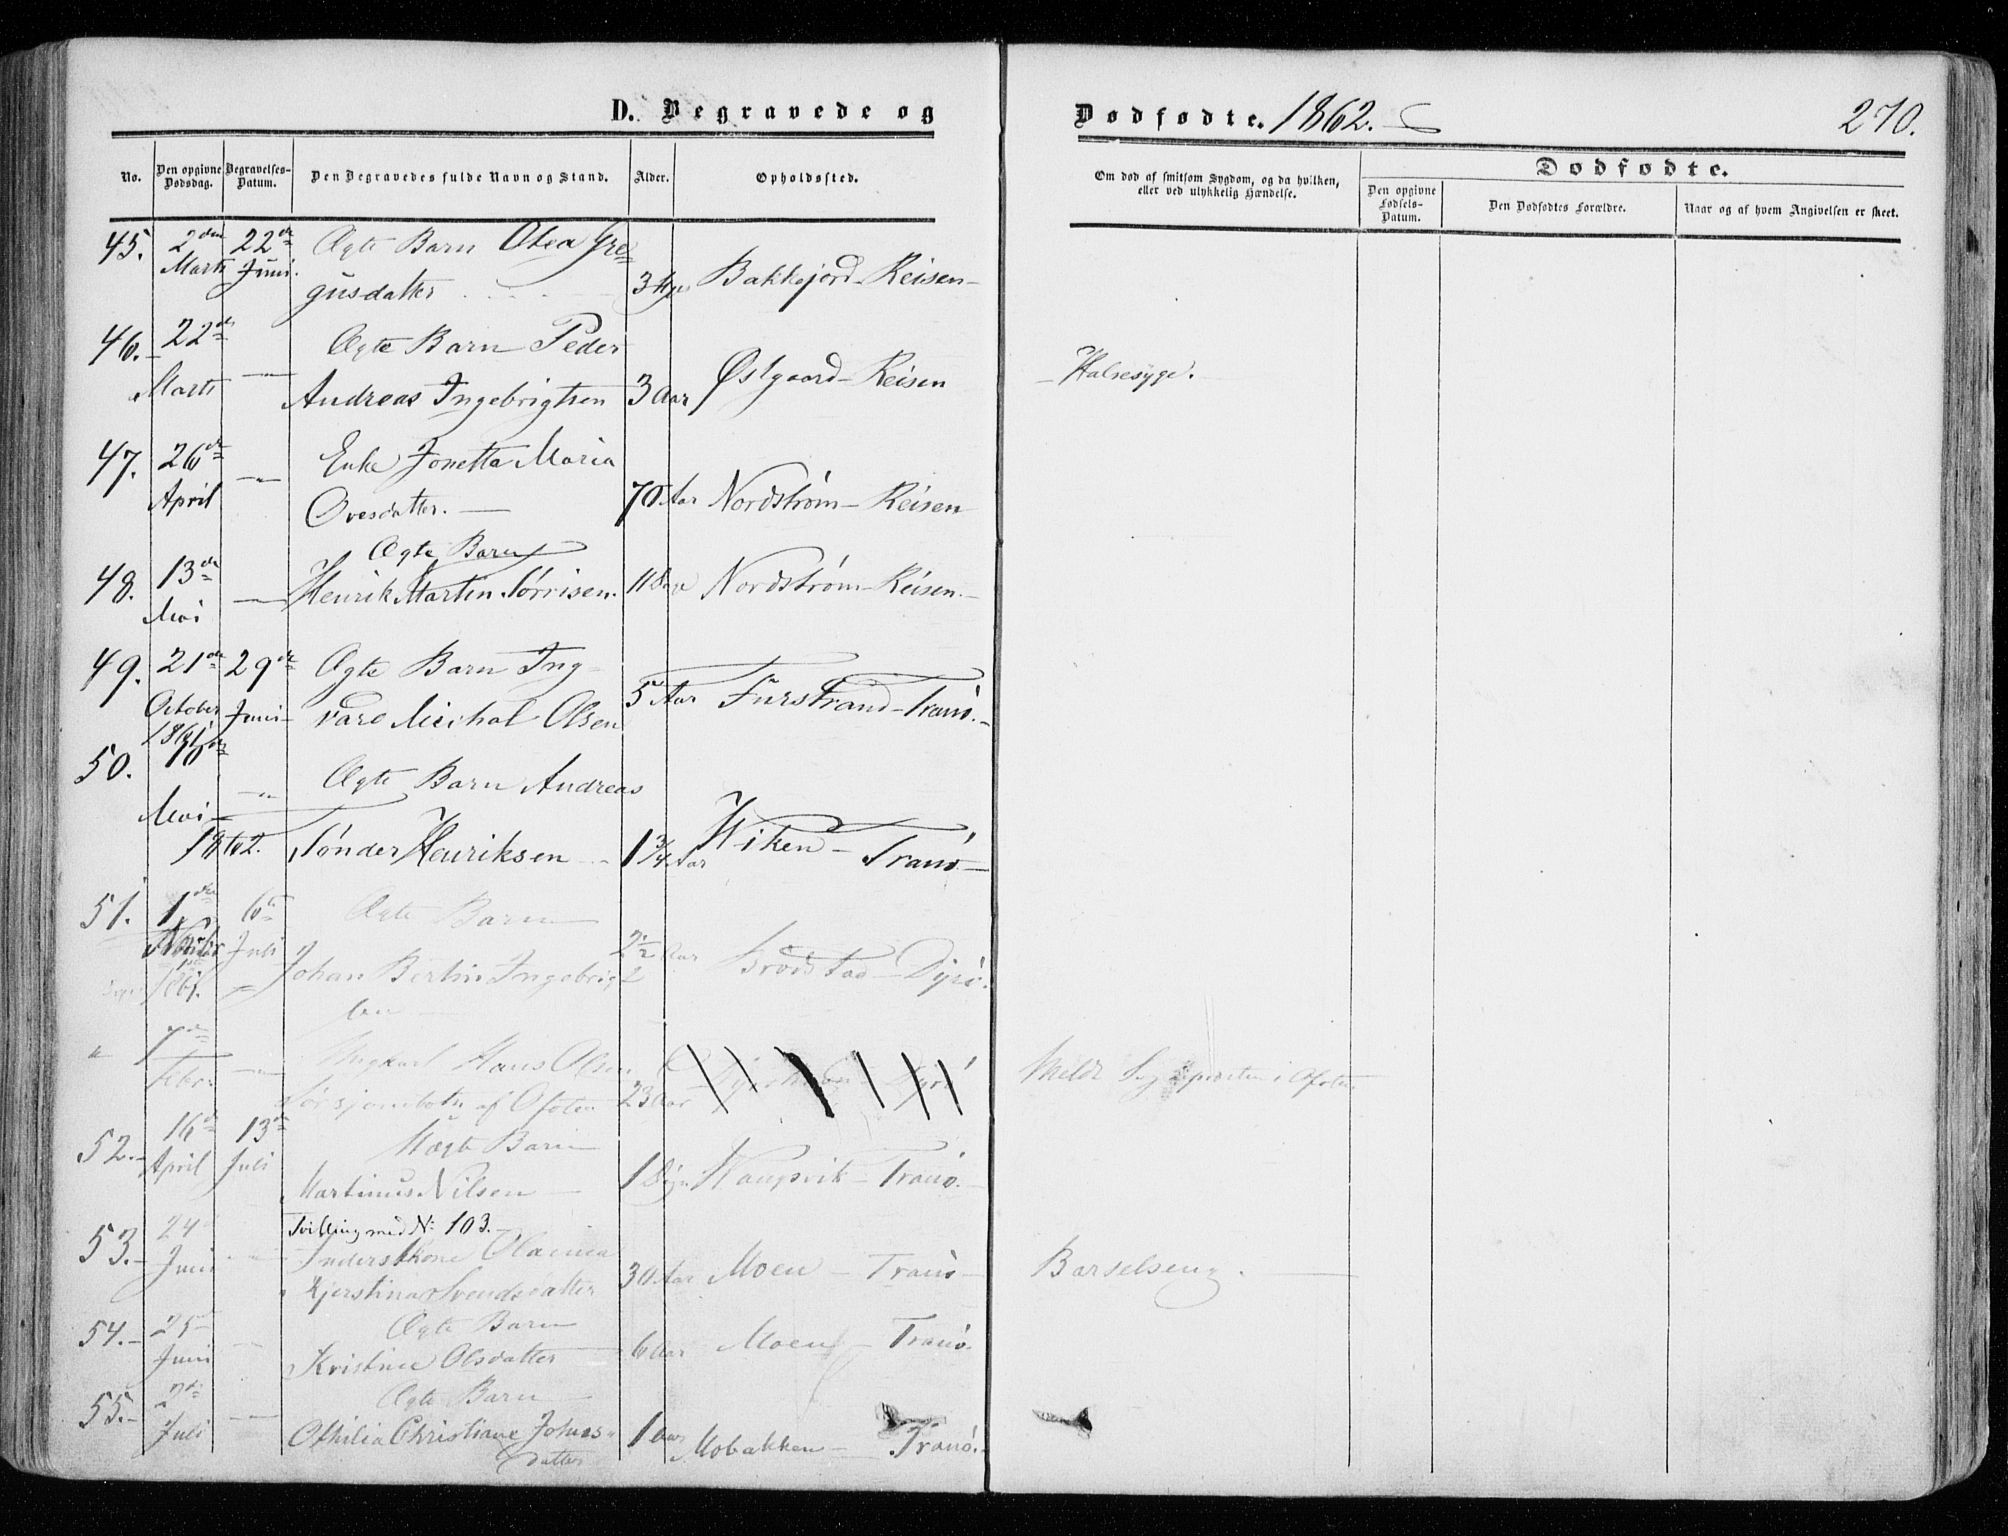 D. Begravede og
Dødfødte. 1862.
270.
No.
Den opgivne Dødsdag.
Begravelses-Datum.
Den Begravedes fulde Navn og Stand.
Alder.
Opholdssted.
Om død af smitsom Sygdom, og da hvilken, eller ved ulykkelig Hændelse.
Dødfødte.
Den opgivne Fødsels-Datum.
Den Dødfødtes Forældre.
Naar og af hvem Angivelsen er skeet.
45. 2den 22de Ægte Barn Olea Gre=
Marts Juni. gusdatter 3 Bakkejord Reisen
46. 22de Ægte Barn Peder
Marts - " - Andreas Ingebrigtsen 3 Aar Østgaard - Reisen - Halsesyge.
47. 26de Enke Jonetta Maria
April - " - Ovesdatter. 70 Aar Nordstrøm - Reisen
48. 13de Ægte Barn
Mai - " - Henrik Martin Sørrisen. 11 Dage Nordstrøm - Reisen.
49. 21de 29de Ægte Barn Ing-
October Juni vare Michal Olsen 5 Aar Furstrand - Tranö.
1861
50. 10de Ægte Barn Andreas
Mai - " -
1862. Sønder Henriksen 1 3/4 Aar Wiken - Tranö
51. 1de 6te Ægte Barn
Juli Johan Bertin Ingebrigt 2 1/2 Aar Dyrö.
sen
" 7de Hans Olsen
Febr - " - af Ofoten 23 Aar Dyrö i Ofoten
52. 16de 13de Uægte Barn
April Juli Martinus Nilsen 1 Kampvik - Tranö.
Tvilling med N: 103.
53. 24 Inderstkone Olavina
Juni Kjerstina Svendsdatter 30 Aar Moen - Tranö Barselseng.
54. 25 Ægte Barn
Juni Kristine Olsdatter 6 Aar Moen - Tranö.
55. 2de Ægte Barn
Juli Othilia Christiane Johns- 1 Aar Mobakken - Tranö.
datter